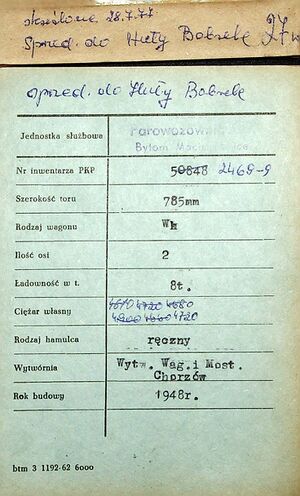 skreślone 28.7.77
Sprzed. do Huty Bobrek
sprzed. do Huty Bobrek
Jednostka służbowa Parowozownia
Bytom
Nr inwentarza PKP 50848 2469-9
Szerokość toru 785mm
Rodzaj wagonu
Ilość osi 2
Ładowność w t. 8t.
Ciężar własny 4610 4720 4680
4200 4660 4720
Rodzaj hamulca ręczny
Wytwórnia Wytw. Wag. i Most.
Chorzów
Rok budowy 1948r.
btm 3 1192-62 6000